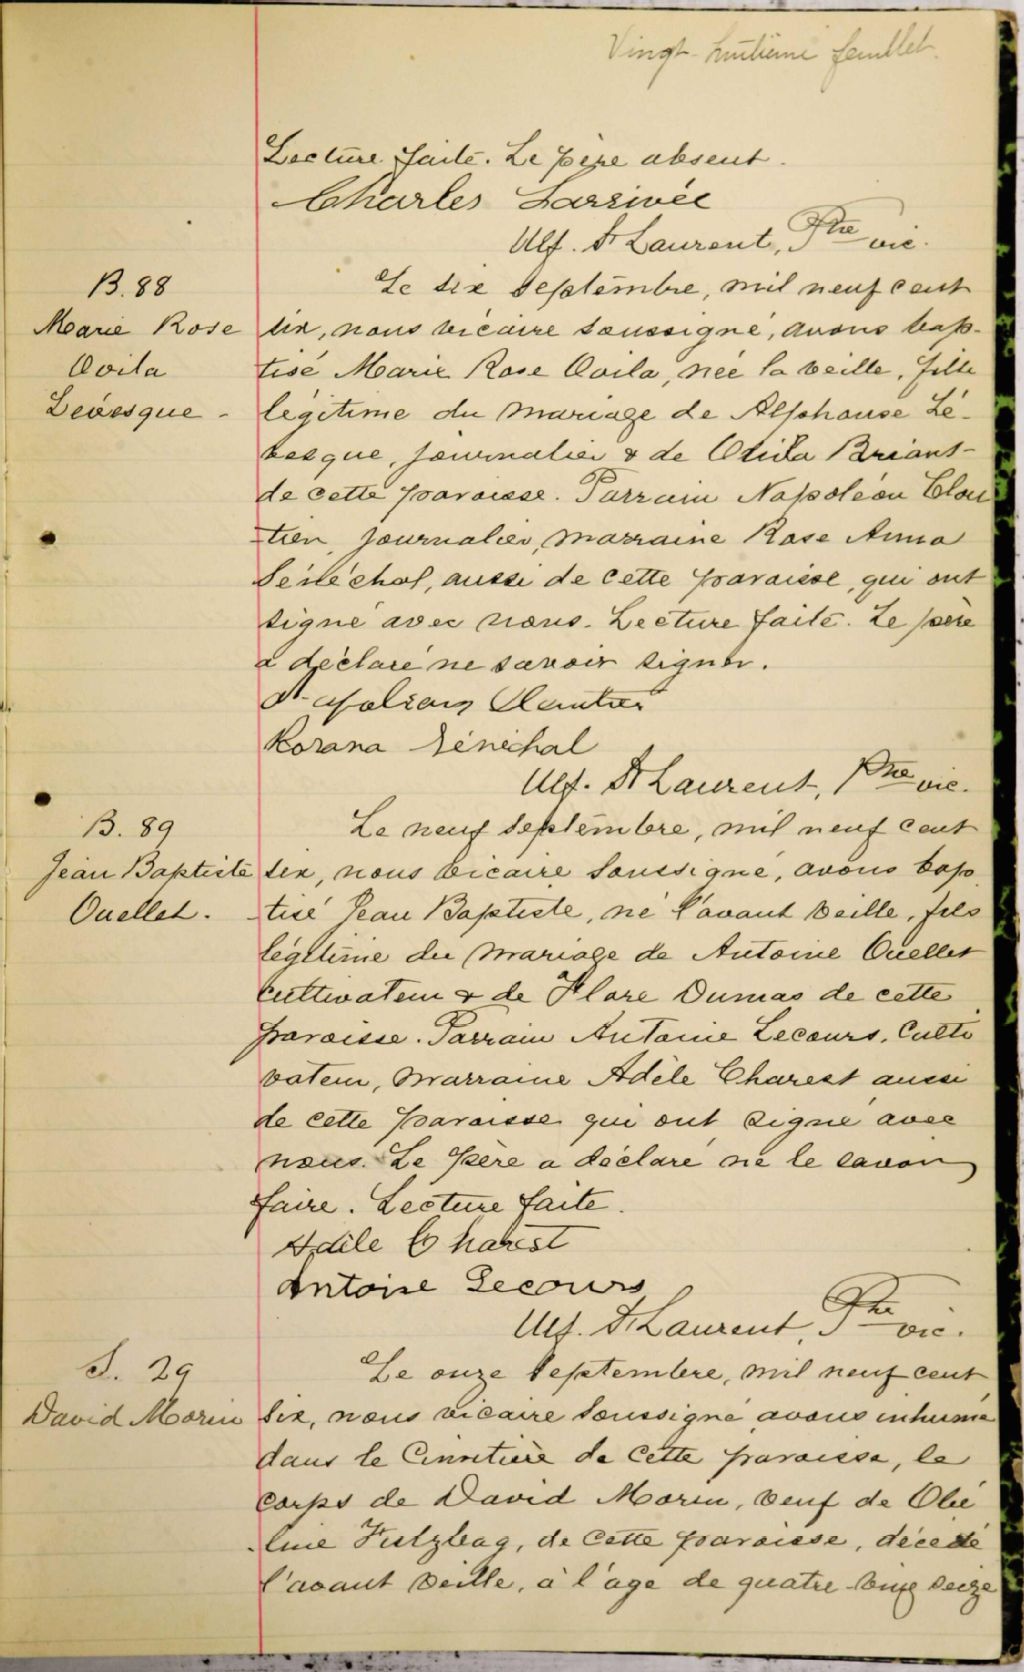 Vingt-huitième feuillet.
Lecture faite. Le père absent.
Charles Larrivée
Ulf. St Laurent, Ptre vic.
B. 88
Marie Rose
Ovila
Levesque -
Le six septembre, mil neuf cent
six, nous vicaire soussigné, avons bap-
tisé Marie Rose Ovila, née la veille, fille
légitime du mariage de Alphonse Lé-
vesque, journalier & de Briant
de cette paroisse. Parrain Napoléon Clou
tier, journalier, marraine Rose Anna
Sénéchal, aussi de cette paroisse, qui ont
signé avec nous. Lecture faite. Le père
a déclaré ne savoir signer.
Napoleon Cloutier
Rosana Sénéchal
Ulf. St Laurent, Ptre vic.
B. 89
Jean Baptiste
Ouellet.
Le neuf septembre, mil neuf cent
six, nous vicaire soussigné, avons bap
tisé Jean Baptiste, né l'avant veille, fils
légitime du mariage de Antoine Ouellet
cultivateur & de Flore Dumas de cette
paroisse. Parrain Antoine Lecours, Culti
vateur, marraine Adèle Charest aussi
de cette paroisse qui ont signé avec
nous. Le père a déclaré ne le savoir
faire. Lecture faite.
Adèle Charest
Antoine Lecours
Ulf. St Laurent, Ptre vic.
S. 29
David Morin
Le onze septembre, mil neuf cent
six, nous vicaire soussigné avons inhumé
dans le Cimetière de cette paroisse, le
corps de David Morin, veuf de
de cette paroisse, décédé
l'avant veille, à l'age de quatre-ving seize